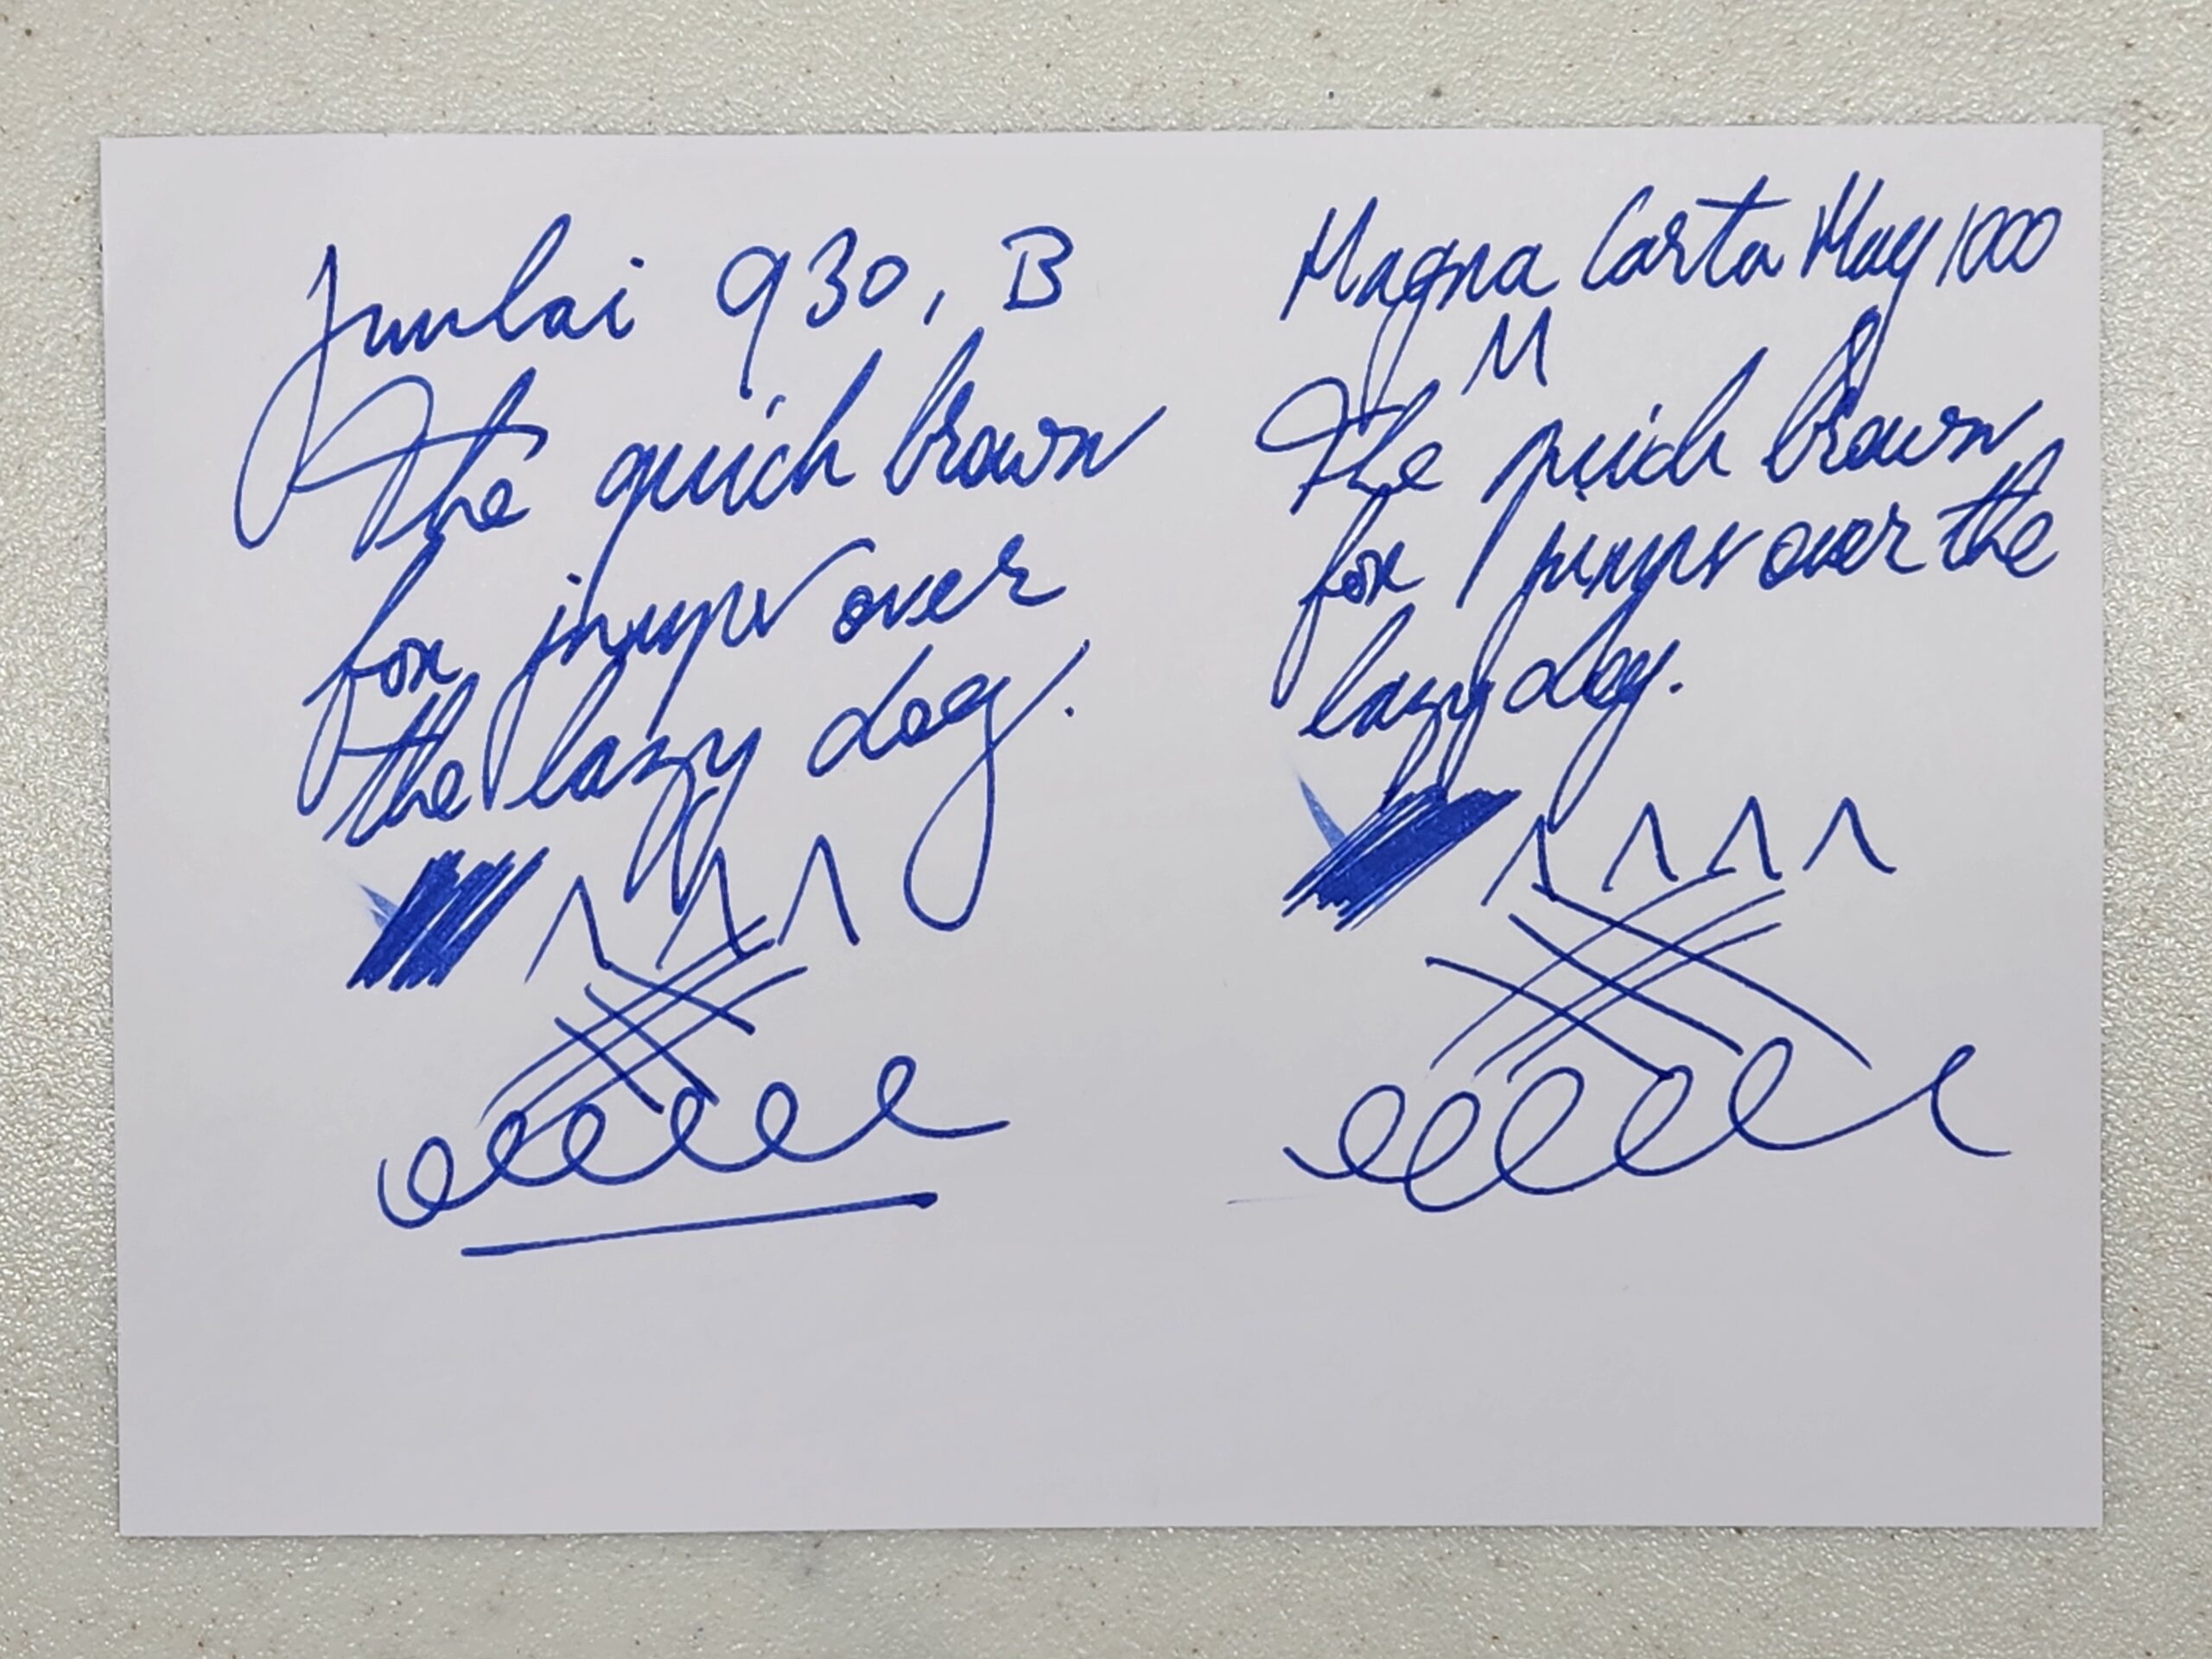 Junlai 930, B
The quick brown
fox jumps over
the lazy dog.
Magna Carta Mag 1000
M
The quick brown
fox jumps over the
lazy dog.